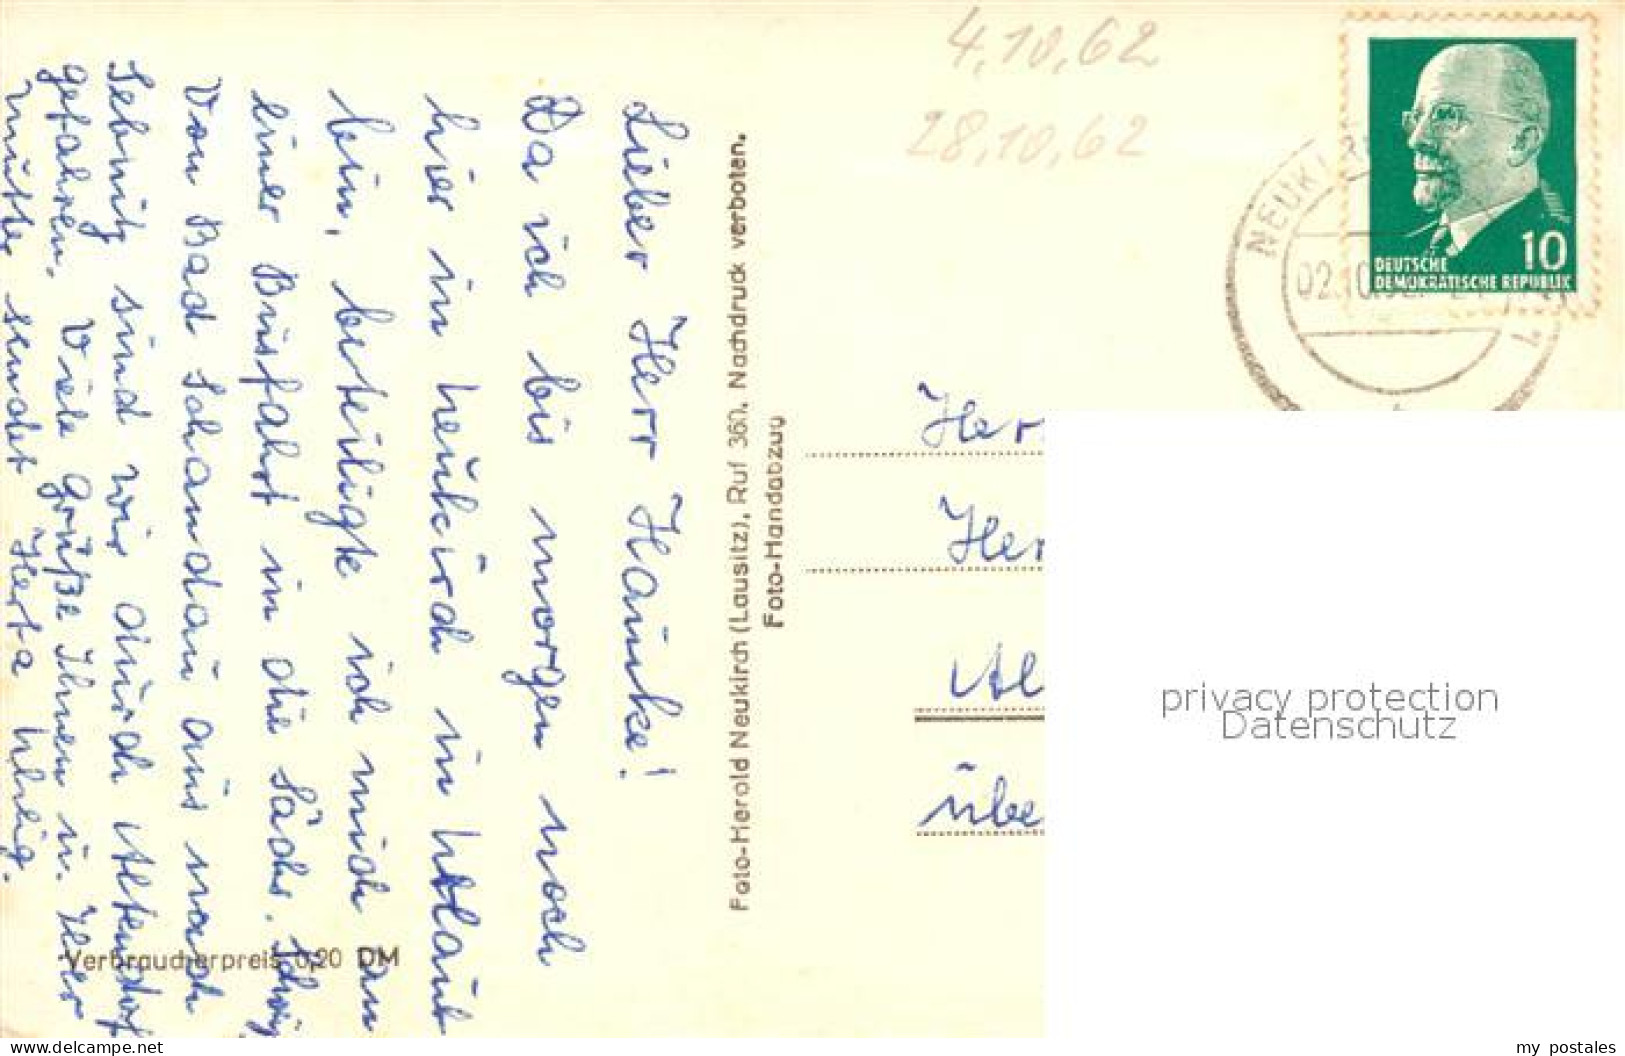 Lieber Herr Hauňke!
Da ich bis morgen noch
hier in Neukirch in Urlaub
bin, beteiligte ich mich an
einer Busfahrt in die Sächs. Schweiz
Von Bad Schandau aus nach
Sebnitz sind wir durch Altendorf
gefahren. Viele Grüße Ihnen u. Ihrer
Mutter sendet Herta Uhlig.
Verbraucherpreis 0,20 DM
Foto-Herold Neukirch (Lausitz), Ruf 360. Nachdruck verboten.
Foto-Handabzug
4.10.62
28.10.62
NEUKIR
02.10.
10
DEUTSCHE
DEMOKRATISCHE REPUBLIK
Her
Her
Al
übe
privacy protection
Datenschutz
my postales
www.delcampe.net